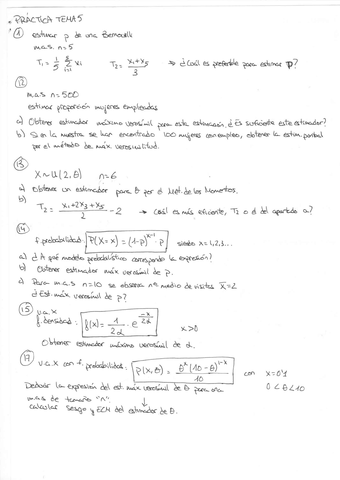 PRÁCTICA TEMA 5
① estimar p de una Bernouilli
m.a.s. n=5
T₁ = 1/5 Σ xi T₂ = (x₁+x₅)/3 → ¿Cuál es preferible para estimar p?
⑫
m.a.s n=500
estimar proporción mujeres empleadas
a) Obtener estimador máximo verosímil para esta estimación. ¿Es suficiente este estimador?
b) Si en la muestra se han encontrado 100 mujeres con empleo, obtener la estim. puntual
por el método de máx verosimilitud.
⑬
X~U(2,θ) n=6
a) Obtener un estimador para θ por el Mét. de los Momentos.
b)
T₂ = (x₁+2x₃+x₅)/2 - 2 → ¿Cuál es más eficiente, T₂ o el del apartado a?
⑭
f. probabilidad: P(X=x) = (1-p)ˣ⁻¹ · p siendo x=1,2,3...
a) ¿A qué modelo probabilístico corresponde la expresión?
b) Obtener estimador máx verosímil de p.
c) Para m.a.s n=10 se observa nº medio de visitas X̄=2
¿Est. máx verosímil de p?
⑮ v.a. X
f. densidad: f(x) = 1/2α · e^(-x/2α) x>0
Obtener estimador máximo verosímil de α.
⑰ v.a. X con f. probabilidad: P(X,θ) = θˣ(10-θ)¹⁻ˣ/10 con x=0,1
0<θ<10
Deducir la expresión del est. máx verosímil de θ para una
m.a.s de tamaño "n".
calcular sesgo y ECM del estimador de θ.